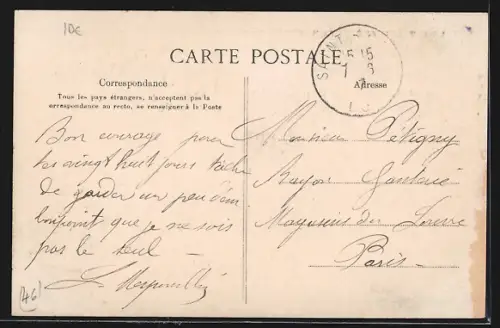 IDE
CARTE POSTALE
SAINT
15
7 8
Correspondance
Adresse
Tous les pays étrangers, n'acceptent pas la
correspondance au recto, se renseigner à la Poste
Bon courage pour
les vingt huit jours tache
de garder un peu d'em
bonpoint que je ne sois
pas le seul -
Monsieur Pétigny
Rayon Ganterie
Magasins du Louvre
Paris -
(46)